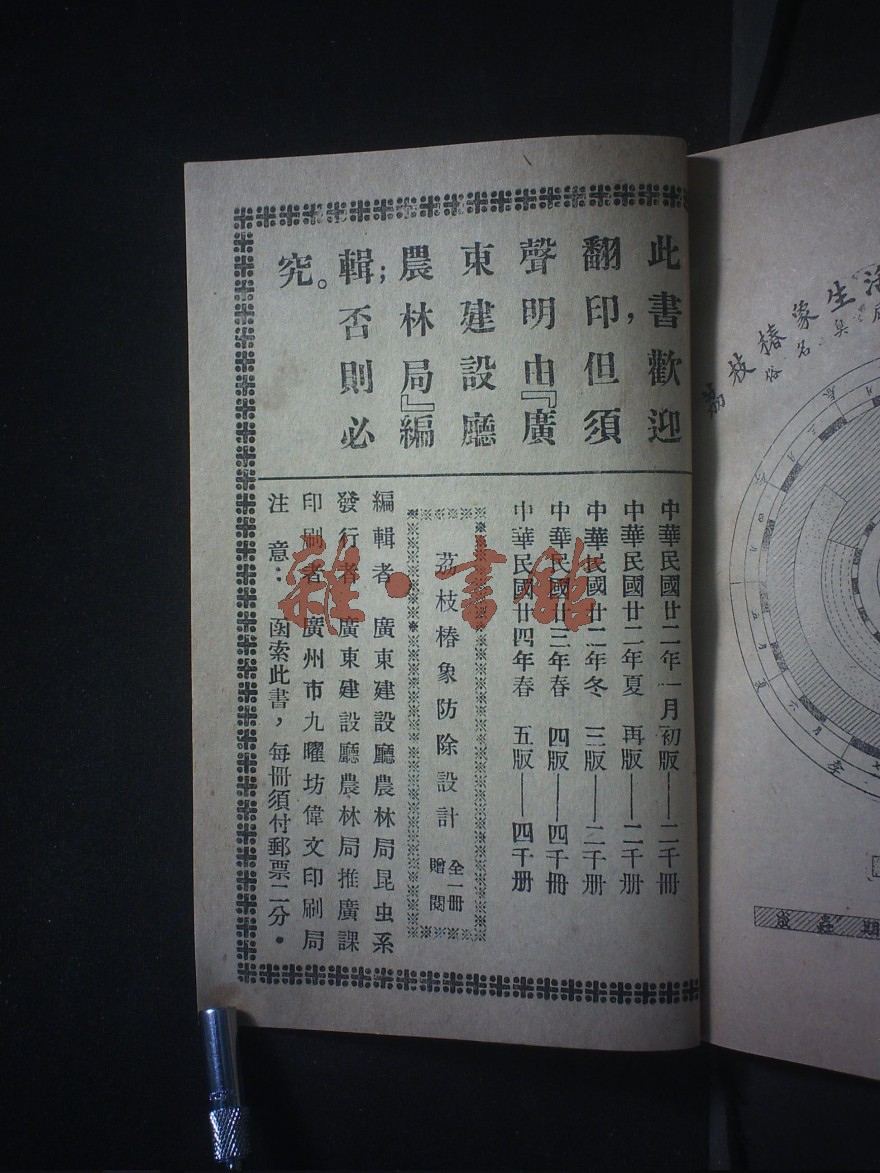 此書歡迎
翻印,但須
聲明由『廣
東建設廳
農林局』編
輯;否則必
究。
中華民國廿二年一月初版——二千冊
中華民國廿二年夏 再版——二千册
中華民國廿二年冬 三版——二千册
中華民國廿三年春 四版——四千冊
中華民國廿四年春 五版——四千册
荔枝椿象防除設計 全一冊
贈閱
編輯者 廣東建設廳農林局昆虫系
發行者 廣東建設廳農林局推廣課
印刷者 廣州市九曜坊偉文印刷局
注意: 函索此書,每冊須付郵票二分。
雜·書館
荔枝椿象生活
俗名臭屁
成蟲期